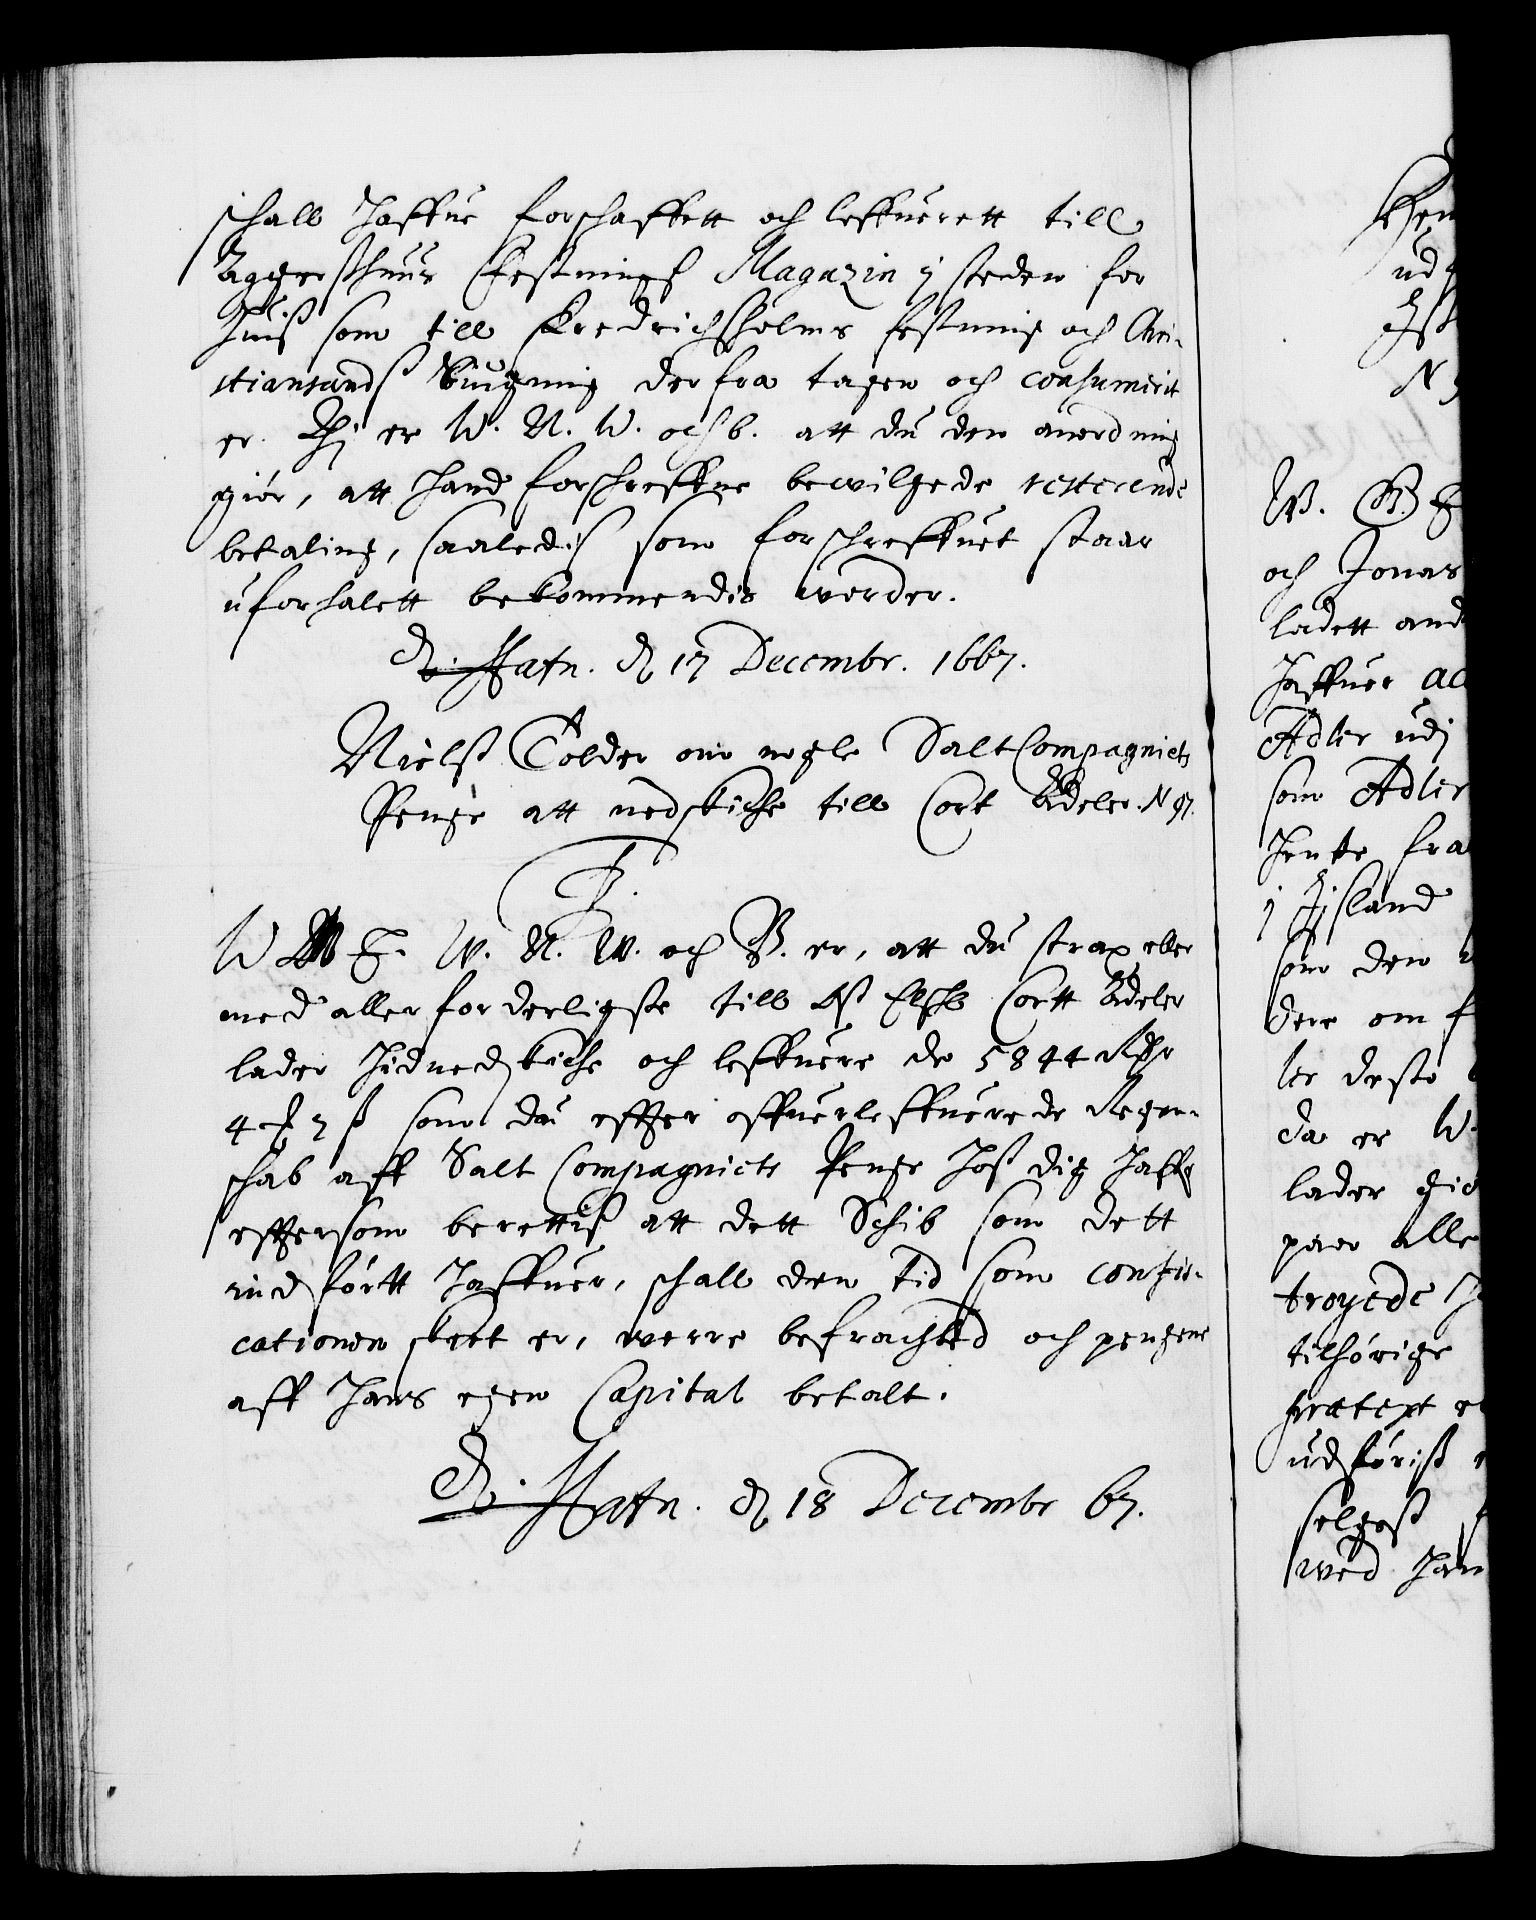 schall haffue forschaffett och leffuerett till
Aggershuus Festnings Magazin j steden for
huis som till Fredrichsholms festning och Chri-
stiansands Bügning derfra tagen och consumirit
er. Thj er W. N. W. och b. att du den anordning
giör, att hand forschreffne bewilgede resterende
betaling, saaledis som forschreffuet staar
uforhalett bekommendis worder.
Hafn. d 17 Decembr. 1667.
Nielss Tolder om nogle Salt Compagniets
Penge att nedskiche till Cort Adeler. N 97.
F.
W F. W. N. W. och B. er, att du strax eller
med allerforderligste till Oss Elschl Cortt Adeler
lader hidnedskiche och leffuere de 5844 Rdr
4 ß som du effter offuerleffuerede Regen-
schab aff Salt Compagniets Penge hoss dig haffr
efftersom berettiss att dett Schib som dett
indförtt haffuer, schall den tid som confis-
cationen skeet er, werre befrachted och pengene
aff hans egen Capital betalt.
Hafn. d 18 Decembr 67.
ud
N
W. G. F
och Jonas
ladett and
haffuer ac
Adler udj
som Adler
hente fra
j Jsland
som den
dere om f
ler desto
da er W.
lader
paa alle
troyede
tilhörige
prætext
udföriss
selges
wed han